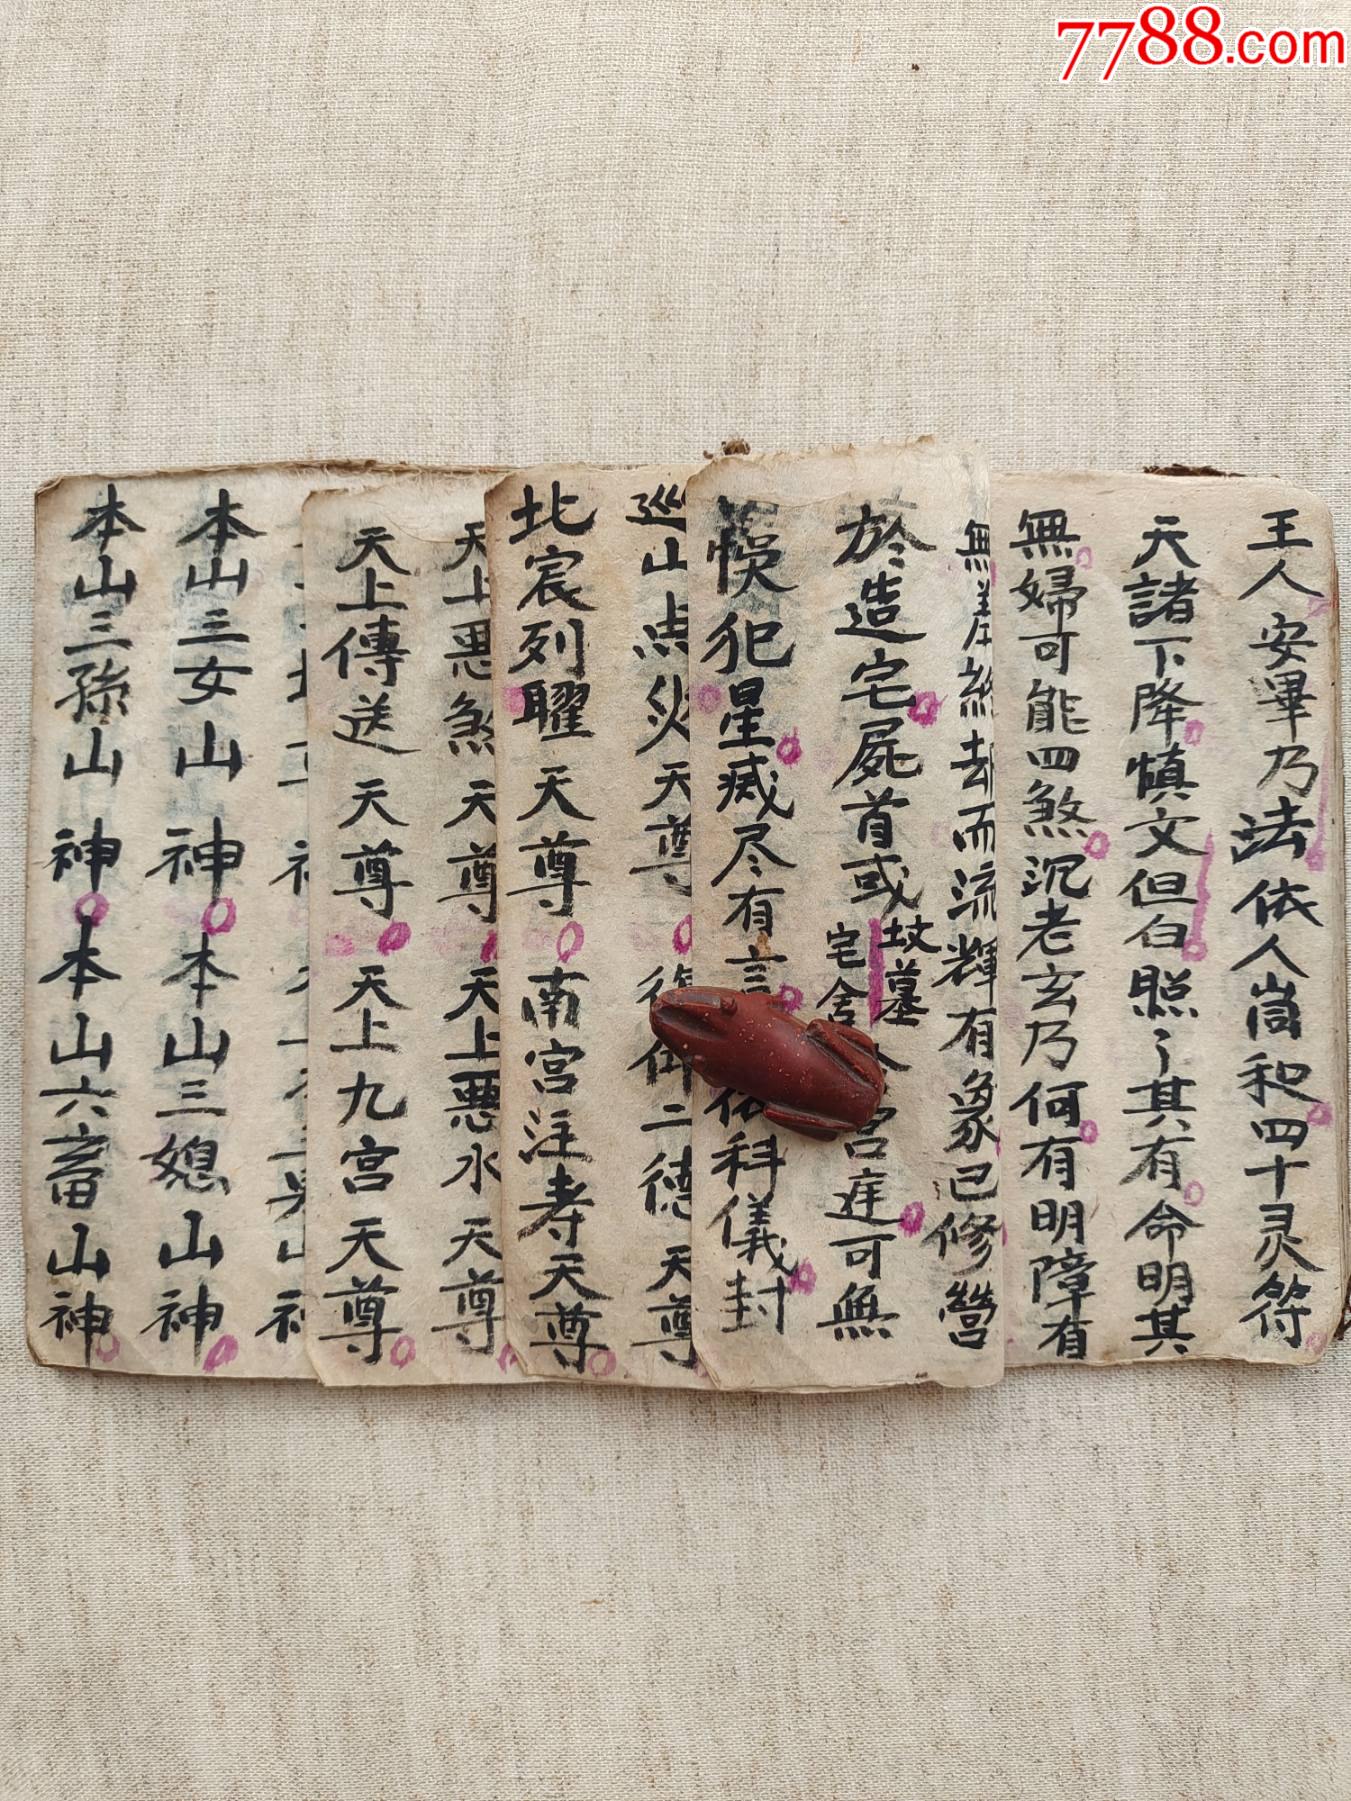 7788.com
王人安畢乃法依人崗和四十灵符
天諸下降慎文但白照了其有命明其
無婦可能四煞沉老玄乃何有明障有
而流輝有象已修營
於造宅屍首或
坟墓
宅舍
宫逹可無
悞犯星
尽有言
依科儀封
巡山点火天尊
二德天尊
北宸列曜天尊南宫注寿天尊
天上悪煞天尊天上悪水天尊
天上傳送天尊天上九宫天尊
本山三女山神本山三媳山神
本山三孫山神本山六畜山神